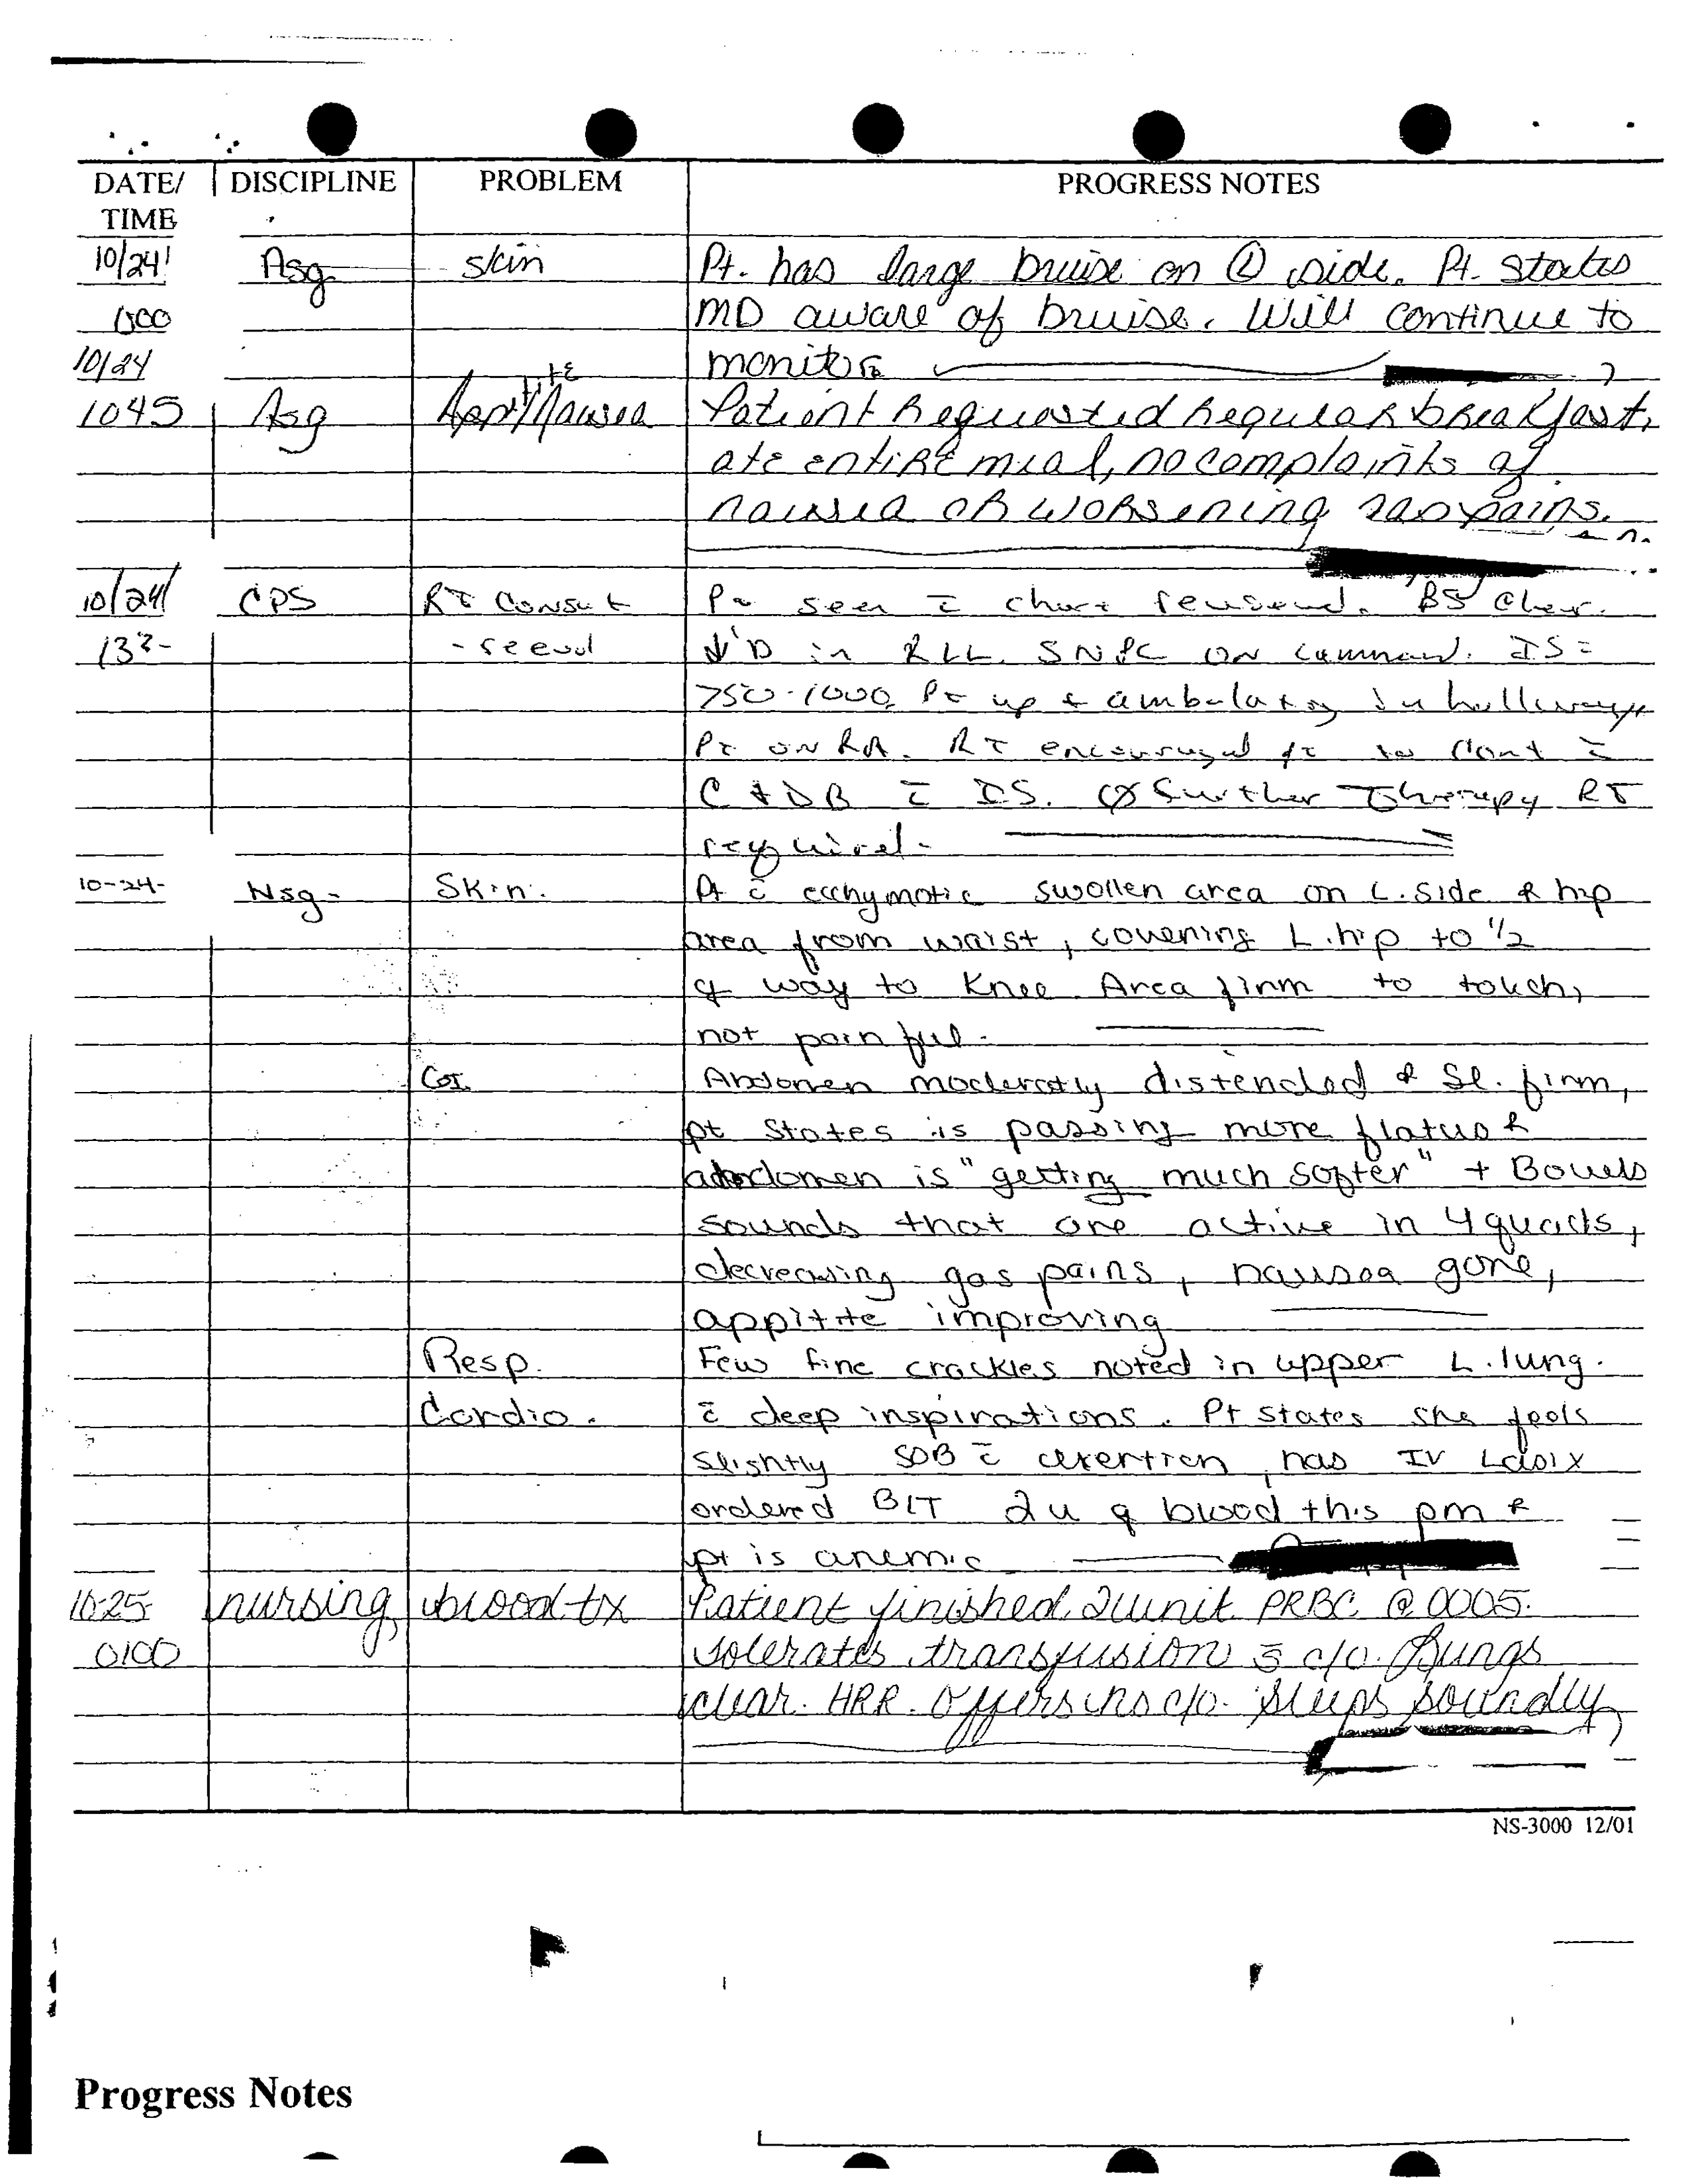 DATE/ DISCIPLINE PROBLEM PROGRESS NOTES
TIME
10/24 Nsg skin Pt. has large bruise on Ⓛ side. Pt. states
MD aware of bruise. Will continue to
10/24 monitor
1045 Nsg Nausea Patient Requested Regular breakfast,
ate entire meal, no complaints of
nausea or worsening gas pains.
10/24 CPS RT Consult Pt seen c̄ chart reviewed. BS clear.
↓'D in RLL. SNPC on command. IS =
750-1000. Pt up + ambulating in hallways
Pt on RA. RT encouraged pt to cont c̄
C + DB c̄ IS. Ø further Therapy RT
required.
10-24- Nsg- Skin. Pt c̄ ecchymotic swollen area on L. side & hip
area from waist, covering L. hip to 1/2
of way to knee. Area firm to touch,
not painful.
GI Abdomen moderatly distended & sl. firm,
pt states is passing more flatus &
abdomen is "getting much softer" + Bowels
sounds that are active in 4 quads,
decreasing gas pains, nausea gone,
appitite improving
Resp. Few fine crackles noted in upper L. lung.
Cardio. c̄ deep inspirations. Pt states she feels
slightly SOB c̄ exertion, has IV Lasix
ordered BIT 2u of blood this pm &
pt is anemic
10-25 nursing blood tx Patient finished 2 unit PRBC @ 0005.
0100 Tolerates transfusion s̄ c/o. Lungs
clear. HRR. Offers no c/o. Sleeps soundly
NS-3000 12/01
Progress Notes